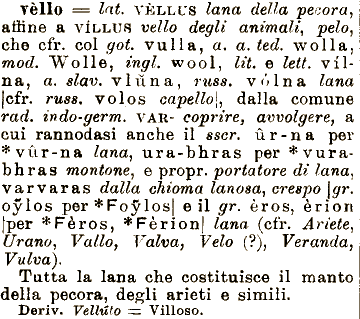 vèllo = lat. VÈLLUS lana della pecora,
affine a VÍLLUS vello degli animali, pelo,
che cfr. col got. vulla, a. a. ted. wolla,
mod. Wolle, ingl. wool, lit. e lett. víl-
na, a. slav. vlŭna, russ. vólna lana
|cfr. russ. volos capello|, dalla comune
rad. indo-germ. VAR- coprire, avvolgere, a
cui rannodasi anche il sscr. ûr-na per
*vûr-na lana, ura-bhras per *vura-
bhras montone, e propr. portatore di lana,
varvaras dalla chioma lanosa, crespo |gr.
oŷlos per *Foŷlos| e il gr. èros, èrion
|per *Fèros, *Fèrion| lana (cfr. Ariete,
Urano, Vallo, Valva, Velo (?), Veranda,
Vulva).
Tutta la lana che costituisce il manto
della pecora, degli arieti e simili.
Deriv. Vellúto = Villoso.